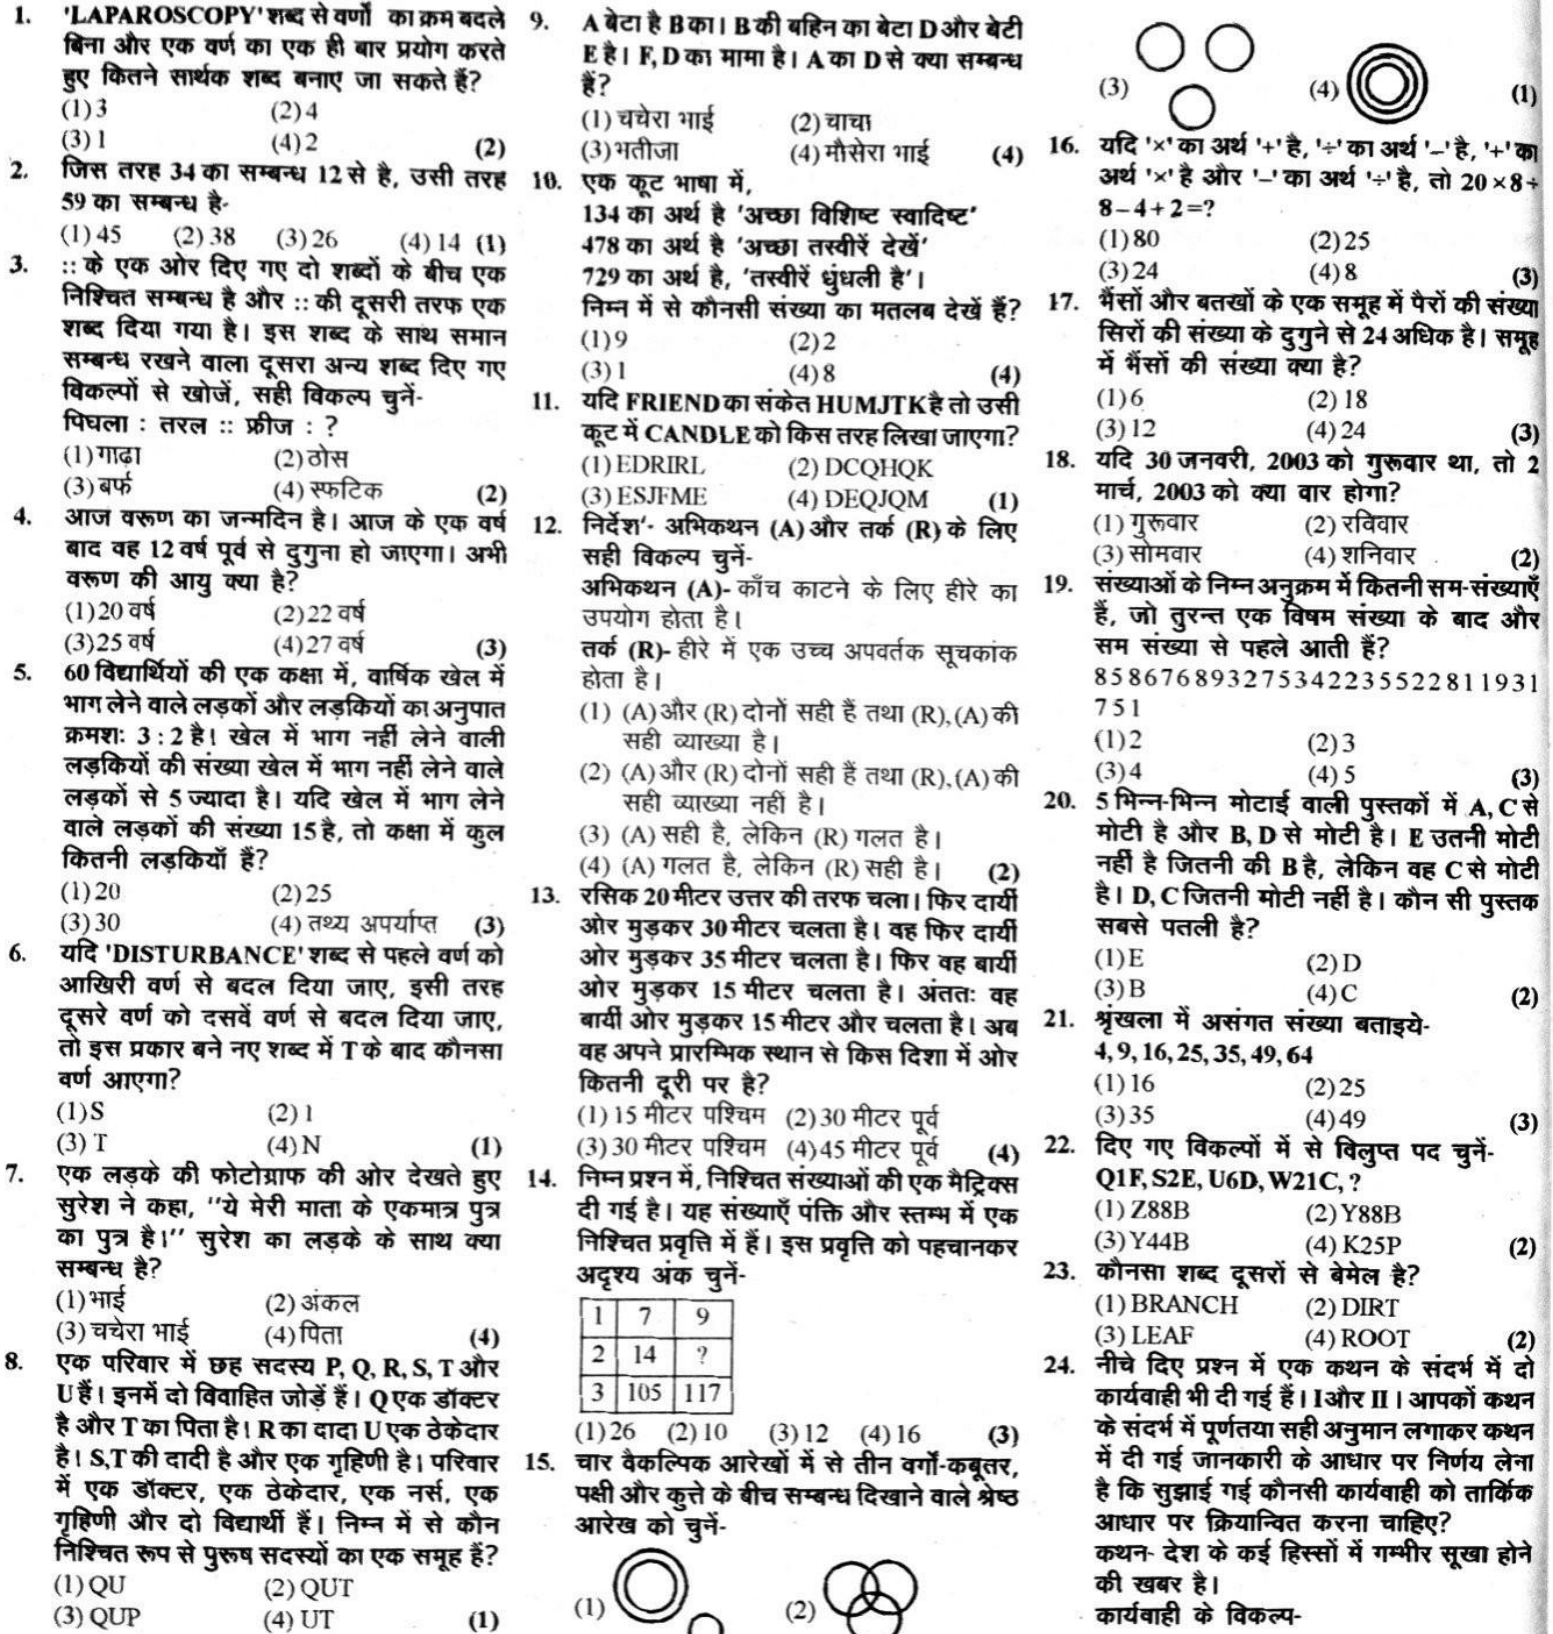 1. 'LAPAROSCOPY' शब्द से वर्णों का क्रम बदले
बिना और एक वर्ण का एक ही बार प्रयोग करते
हुए कितने सार्थक शब्द बनाए जा सकते हैं?
(1) 3 (2) 4
(3) 1 (4) 2 (2)
2. जिस तरह 34 का सम्बन्ध 12 से है, उसी तरह
59 का सम्बन्ध है-
(1) 45 (2) 38 (3) 26 (4) 14 (1)
3. :: के एक ओर दिए गए दो शब्दों के बीच एक
निश्चित सम्बन्ध है और :: की दूसरी तरफ एक
शब्द दिया गया है। इस शब्द के साथ समान
सम्बन्ध रखने वाला दूसरा अन्य शब्द दिए गए
विकल्पों से खोजें, सही विकल्प चुनें-
पिघला : तरल :: फ्रीज : ?
(1) गाढ़ा (2) ठोस
(3) बर्फ (4) स्फटिक (2)
4. आज वरूण का जन्मदिन है। आज के एक वर्ष
बाद वह 12 वर्ष पूर्व से दुगुना हो जाएगा। अभी
वरूण की आयु क्या है?
(1) 20 वर्ष (2) 22 वर्ष
(3) 25 वर्ष (4) 27 वर्ष (3)
5. 60 विद्यार्थियों की एक कक्षा में, वार्षिक खेल में
भाग लेने वाले लड़कों और लड़कियों का अनुपात
क्रमशः 3 : 2 है। खेल में भाग नहीं लेने वाली
लड़कियों की संख्या खेल में भाग नहीं लेने वाले
लड़कों से 5 ज्यादा है। यदि खेल में भाग लेने
वाले लड़कों की संख्या 15 है, तो कक्षा में कुल
कितनी लड़कियाँ हैं?
(1) 20 (2) 25
(3) 30 (4) तथ्य अपर्याप्त (3)
6. यदि 'DISTURBANCE' शब्द से पहले वर्ण को
आखिरी वर्ण से बदल दिया जाए, इसी तरह
दूसरे वर्ण को दसवें वर्ण से बदल दिया जाए,
तो इस प्रकार बने नए शब्द में T के बाद कौनसा
वर्ण आएगा?
(1) S (2) I
(3) T (4) N (1)
7. एक लड़के की फोटोग्राफ की ओर देखते हुए
सुरेश ने कहा, ''ये मेरी माता के एकमात्र पुत्र
का पुत्र है।'' सुरेश का लड़के के साथ क्या
सम्बन्ध है?
(1) भाई (2) अंकल
(3) चचेरा भाई (4) पिता (4)
8. एक परिवार में छह सदस्य P, Q, R, S, T और
U हैं। इनमें दो विवाहित जोड़ें हैं। Q एक डॉक्टर
है और T का पिता है। R का दादा U एक ठेकेदार
है। S,T की दादी है और एक गृहिणी है। परिवार
में एक डॉक्टर, एक ठेकेदार, एक नर्स, एक
गृहिणी और दो विद्यार्थी हैं। निम्न में से कौन
निश्चित रूप से पुरूष सदस्यों का एक समूह हैं?
(1) QU (2) QUT
(3) QUP (4) UT (1)
9. A बेटा है B का। B की बहिन का बेटा D और बेटी
E है। F, D का मामा है। A का D से क्या सम्बन्ध
हैं?
(1) चचेरा भाई (2) चाचा
(3) भतीजा (4) मौसेरा भाई (4)
10. एक कूट भाषा में,
134 का अर्थ है 'अच्छा विशिष्ट स्वादिष्ट'
478 का अर्थ है 'अच्छा तस्वीरें देखें'
729 का अर्थ है, 'तस्वीरें धुंधली है'।
निम्न में से कौनसी संख्या का मतलब देखें हैं?
(1) 9 (2) 2
(3) 1 (4) 8 (4)
11. यदि FRIEND का संकेत HUMJTK है तो उसी
कूट में CANDLE को किस तरह लिखा जाएगा?
(1) EDRIRL (2) DCQHQK
(3) ESJFME (4) DEQJQM (1)
12. निर्देश'- अभिकथन (A) और तर्क (R) के लिए
सही विकल्प चुनें-
अभिकथन (A)- काँच काटने के लिए हीरे का
उपयोग होता है।
तर्क (R)- हीरे में एक उच्च अपवर्तक सूचकांक
होता है।
(1) (A) और (R) दोनों सही हैं तथा (R), (A) की
सही व्याख्या है।
(2) (A) और (R) दोनों सही हैं तथा (R), (A) की
सही व्याख्या नहीं है।
(3) (A) सही है, लेकिन (R) गलत है।
(4) (A) गलत है, लेकिन (R) सही है। (2)
13. रसिक 20 मीटर उत्तर की तरफ चला। फिर दायीं
ओर मुड़कर 30 मीटर चलता है। वह फिर दायीं
ओर मुड़कर 35 मीटर चलता है। फिर वह बायीं
ओर मुड़कर 15 मीटर चलता है। अंततः वह
बायीं ओर मुड़कर 15 मीटर और चलता है। अब
वह अपने प्रारम्भिक स्थान से किस दिशा में ओर
कितनी दूरी पर है?
(1) 15 मीटर पश्चिम (2) 30 मीटर पूर्व
(3) 30 मीटर पश्चिम (4) 45 मीटर पूर्व (4)
14. निम्न प्रश्न में, निश्चित संख्याओं की एक मैट्रिक्स
दी गई है। यह संख्याएँ पंक्ति और स्तम्भ में एक
निश्चित प्रवृत्ति में हैं। इस प्रवृत्ति को पहचानकर
अदृश्य अंक चुनें-
1 7 9
2 14 ?
3 105 117
(1) 26 (2) 10 (3) 12 (4) 16 (3)
15. चार वैकल्पिक आरेखों में से तीन वर्गों-कबूतर,
पक्षी और कुत्ते के बीच सम्बन्ध दिखाने वाले श्रेष्ठ
आरेख को चुनें-
(1) (2)
(3) (4) (1)
16. यदि '×' का अर्थ '+' है, '÷' का अर्थ '–' है, '+' का
अर्थ '×' है और '–' का अर्थ '÷' है, तो 20 × 8 ÷
8 – 4 + 2 = ?
(1) 80 (2) 25
(3) 24 (4) 8 (3)
17. भैंसों और बतखों के एक समूह में पैरों की संख्या
सिरों की संख्या के दुगुने से 24 अधिक है। समूह
में भैंसों की संख्या क्या है?
(1) 6 (2) 18
(3) 12 (4) 24 (3)
18. यदि 30 जनवरी, 2003 को गुरूवार था, तो 2
मार्च, 2003 को क्या वार होगा?
(1) गुरूवार (2) रविवार
(3) सोमवार (4) शनिवार (2)
19. संख्याओं के निम्न अनुक्रम में कितनी सम-संख्याएँ
हैं, जो तुरन्त एक विषम संख्या के बाद और
सम संख्या से पहले आती हैं?
8 5 8 6 7 6 8 9 3 2 7 5 3 4 2 2 3 5 5 2 2 8 1 1 9 3 1
7 5 1
(1) 2 (2) 3
(3) 4 (4) 5 (3)
20. 5 भिन्न-भिन्न मोटाई वाली पुस्तकों में A, C से
मोटी है और B, D से मोटी है। E उतनी मोटी
नहीं है जितनी की B है, लेकिन वह C से मोटी
है। D, C जितनी मोटी नहीं है। कौन सी पुस्तक
सबसे पतली है?
(1) E (2) D
(3) B (4) C (2)
21. श्रृंखला में असंगत संख्या बताइये-
4, 9, 16, 25, 35, 49, 64
(1) 16 (2) 25
(3) 35 (4) 49 (3)
22. दिए गए विकल्पों में से विलुप्त पद चुनें-
Q1F, S2E, U6D, W21C, ?
(1) Z88B (2) Y88B
(3) Y44B (4) K25P (2)
23. कौनसा शब्द दूसरों से बेमेल है?
(1) BRANCH (2) DIRT
(3) LEAF (4) ROOT (2)
24. नीचे दिए प्रश्न में एक कथन के संदर्भ में दो
कार्यवाही भी दी गई हैं। I और II । आपकों कथन
के संदर्भ में पूर्णतया सही अनुमान लगाकर कथन
में दी गई जानकारी के आधार पर निर्णय लेना
है कि सुझाई गई कौनसी कार्यवाही को तार्किक
आधार पर क्रियान्वित करना चाहिए?
कथन- देश के कई हिस्सों में गम्भीर सूखा होने
की खबर है।
कार्यवाही के विकल्प-